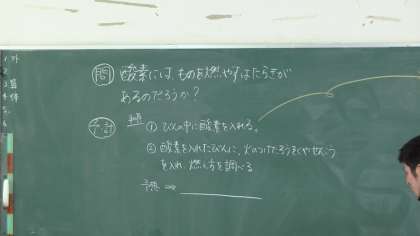 問 酸素には、ものを燃やすはたらきが
あるのだろうか？
予・計
① びんの中に酸素を入れる。
② 酸素を入れたびんに、火のつけたろうそくやせんこう
を入れ、燃え方を調べる
予想 ⇒